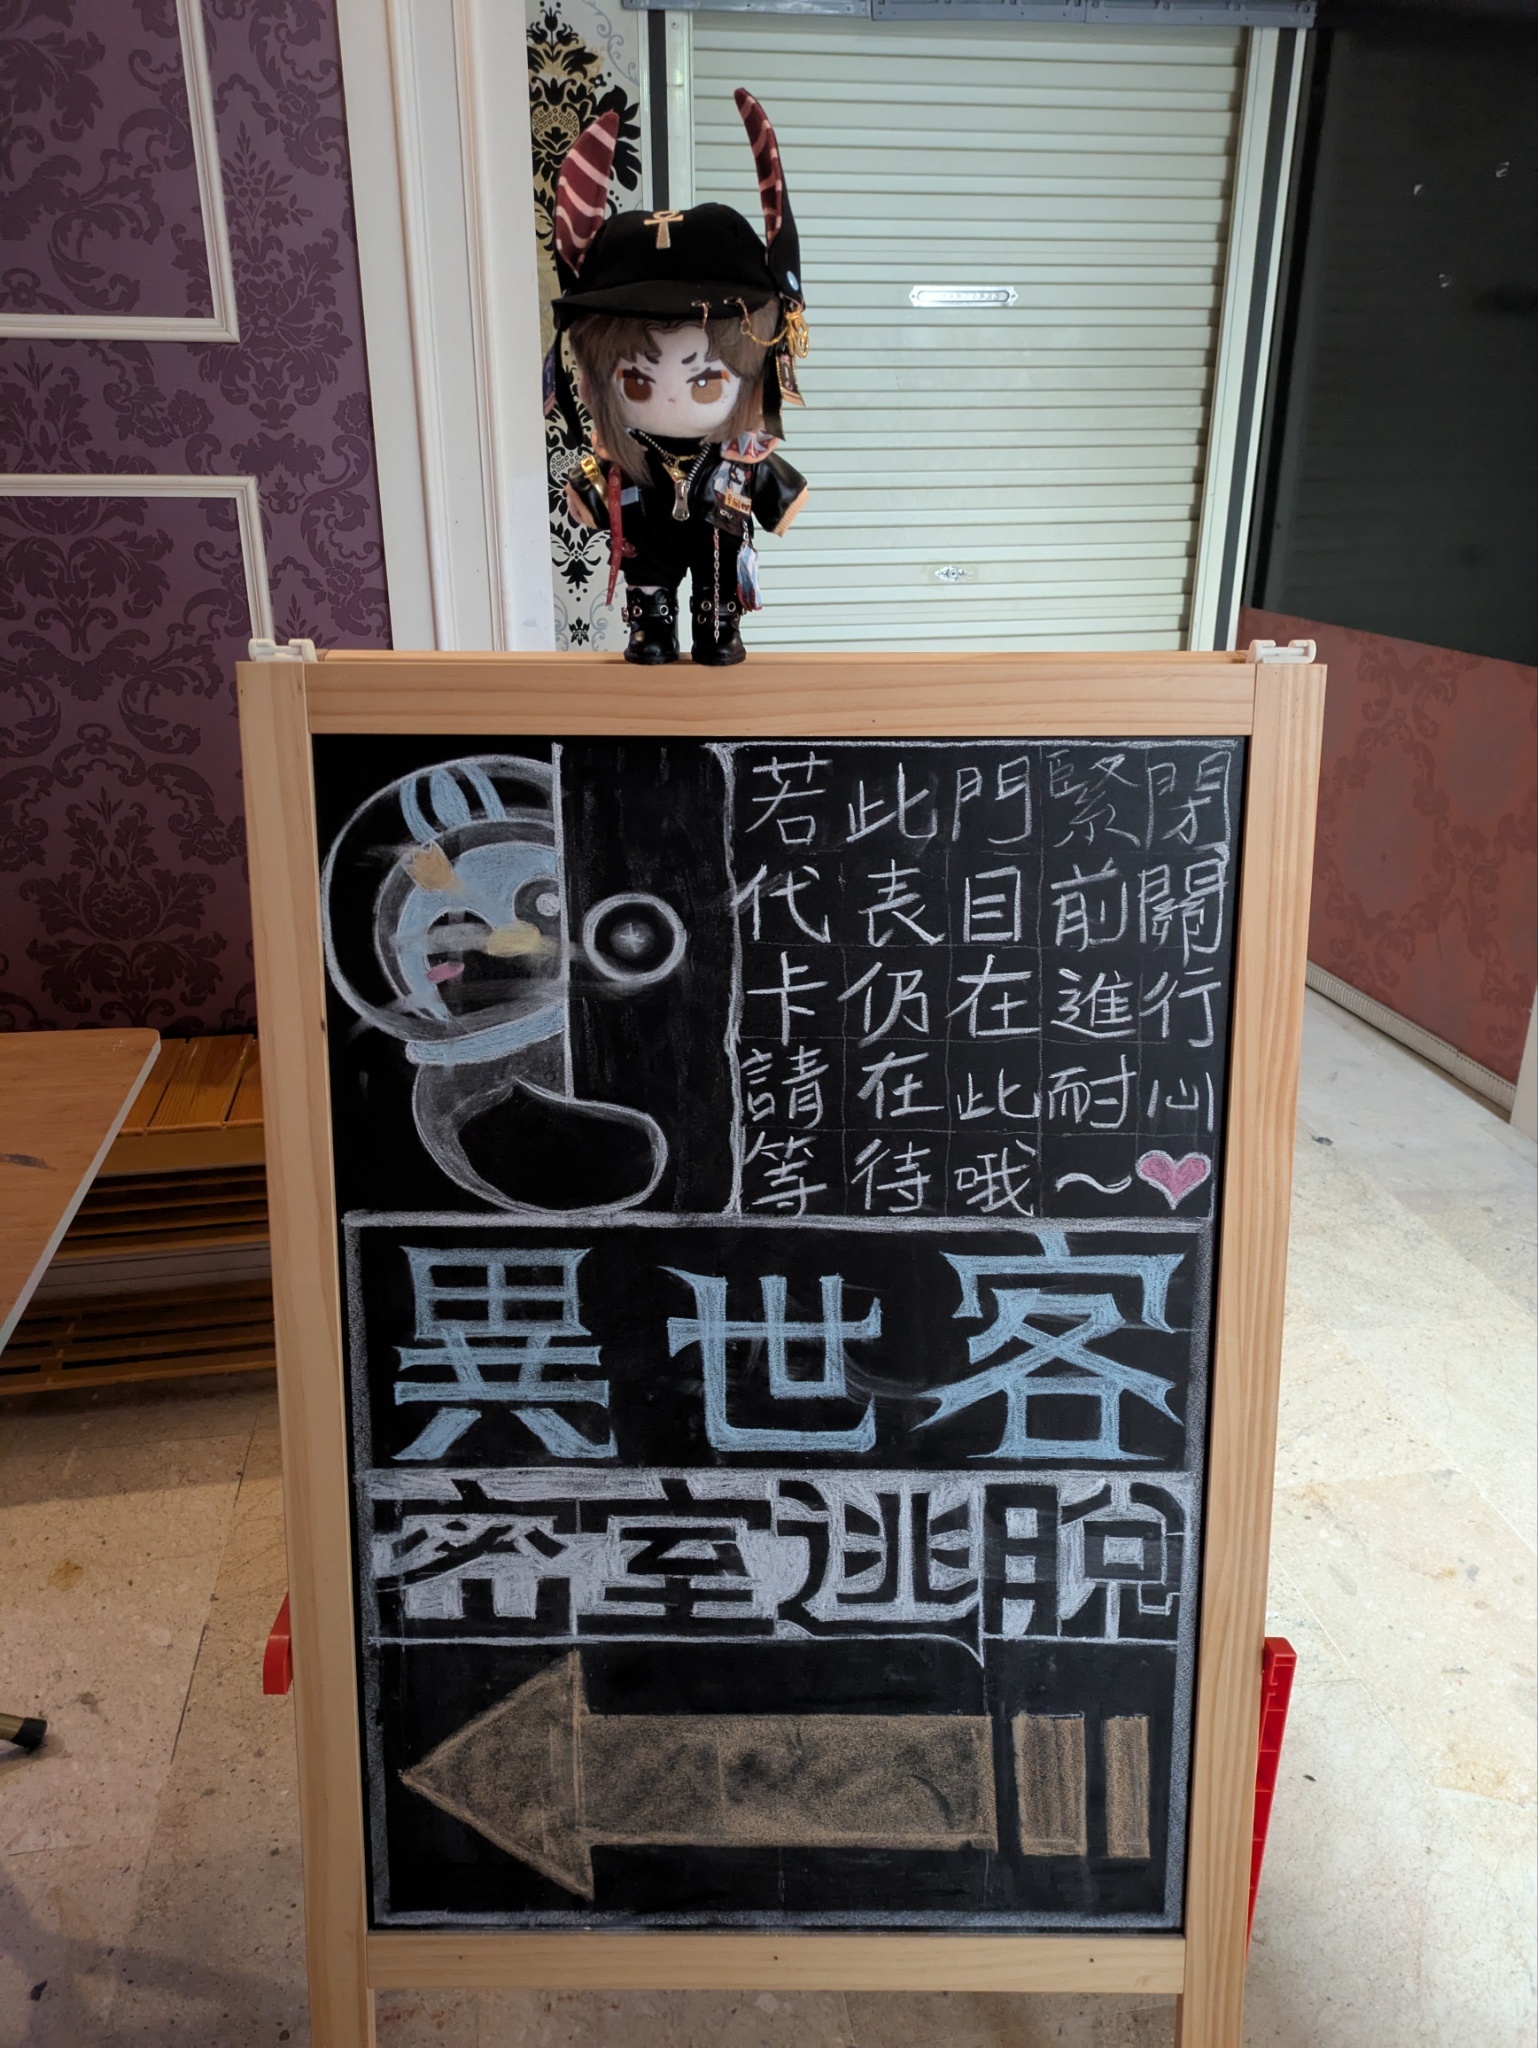 若此門緊閉
代表目前關
卡仍在進行
請在此耐心
等待哦～♥
異世客
密室逃脫